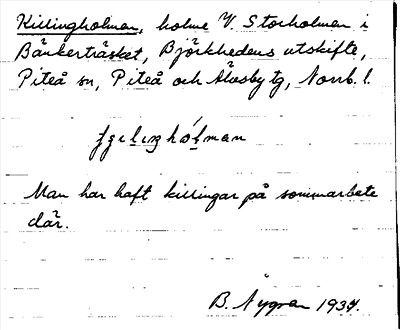 Killingholman, holme V. Storholmen i
Bänkerträsket, Björkhedens utskifte,
Piteå sn, Piteå och Älvsby tg, Norrb. l.
Man har haft killingar på sommarbete
där.
B. Nygren 1937.